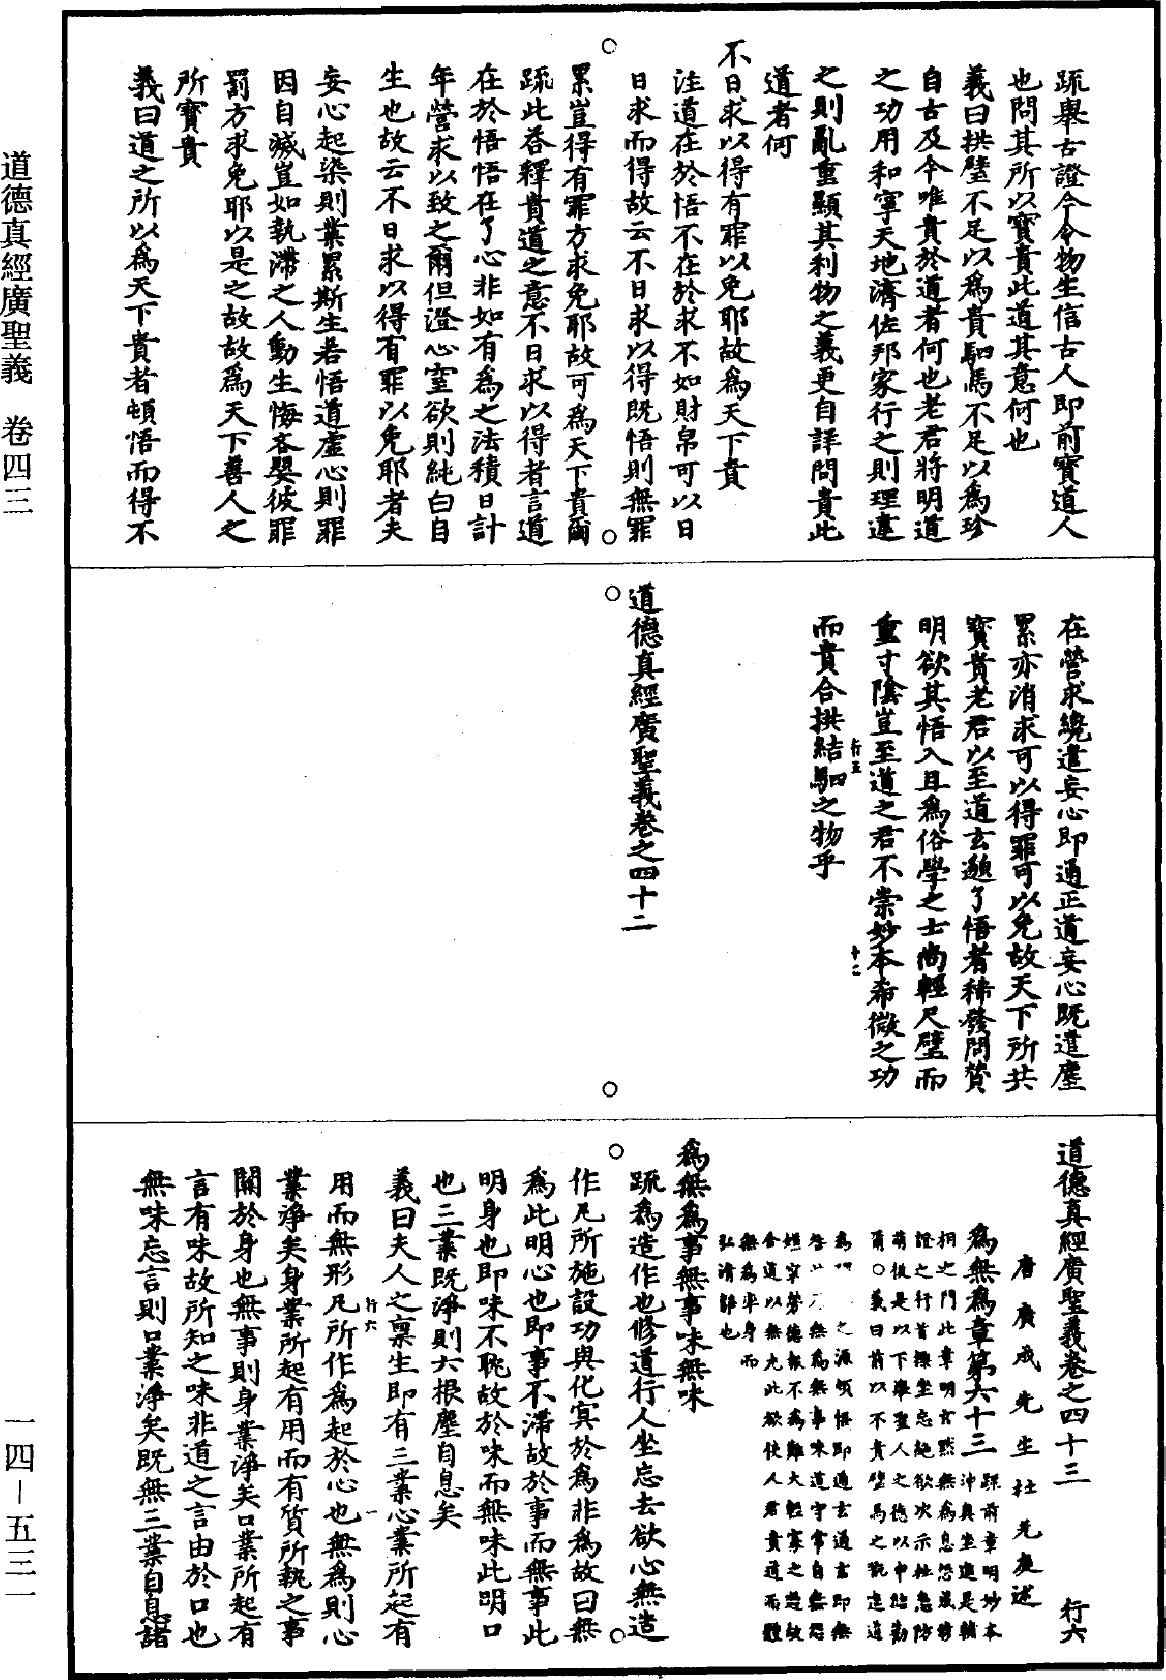 疏舉古證今令物生信古人即前寶道人
也問其所以寶貴此道其意何也
義曰拱璧不足以為貴駟馬不足以為珍
自古及今唯貴於道者何也老君將明道
之功用和寧天地濟佐邦家行之則理違
之則亂重顯其利物之義更自詳問貴此
道者何
不日求以得有罪以免耶故為天下貴
注道在於悟不在於求不如財帛可以日
日求而得故云不日求以得既悟則無罪
累豈得有罪方求免耶故可為天下貴爾
疏此荅釋貴道之意不日求以得者言道
在於悟悟在了心非如有為之法積日計
年營求以致之爾但澄心窒欲則純白自
生也故云不日求以得有罪以免耶者夫
妄心起染則業累斯生若悟道虛心則罪
因自滅豈如執滯之人動生悔吝嬰彼罪
罰方求免耶以是之故故為天下善人之
所寶貴
義曰道之所以為天下貴者頓悟而得不
在營求纔遣妄心即通正道妄心既遣塵
累亦消求可以得罪可以免故天下所共
寶貴老君以至道玄邈了悟者稀發問贊
明欲其悟入且為俗學之士尚輕尺璧而
重寸陰豈至道之君不崇妙本希微之功
而貴合拱結駟之物乎
道德真經廣聖義卷之四十二
道德真經廣聖義卷之四十三 行六
唐廣成先生杜光庭述
為無為章第六十三
疏前章明妙本沖奧坐進是輔
為無為事無事味無味
疏為造作也修道行人坐忘去欲心無造
作凡所施設功與化冥於為非為故曰無
為此明心也即事不滯故於事而無事此
明身也即味不耽故於味而無味此明口
也三業既淨則六根塵自息矣
義曰夫人之稟生即有三業心業所起有
用而無形凡所作為起於心也無為則心
業淨矣身業所起有用而有質所執之事
關於身也無事則身業淨矣口業所起有
言有味故所知之味非道之言由於口也
無味忘言則口業淨矣既無三業自息諸
道德真經廣聖義 卷四三
一四—五三一